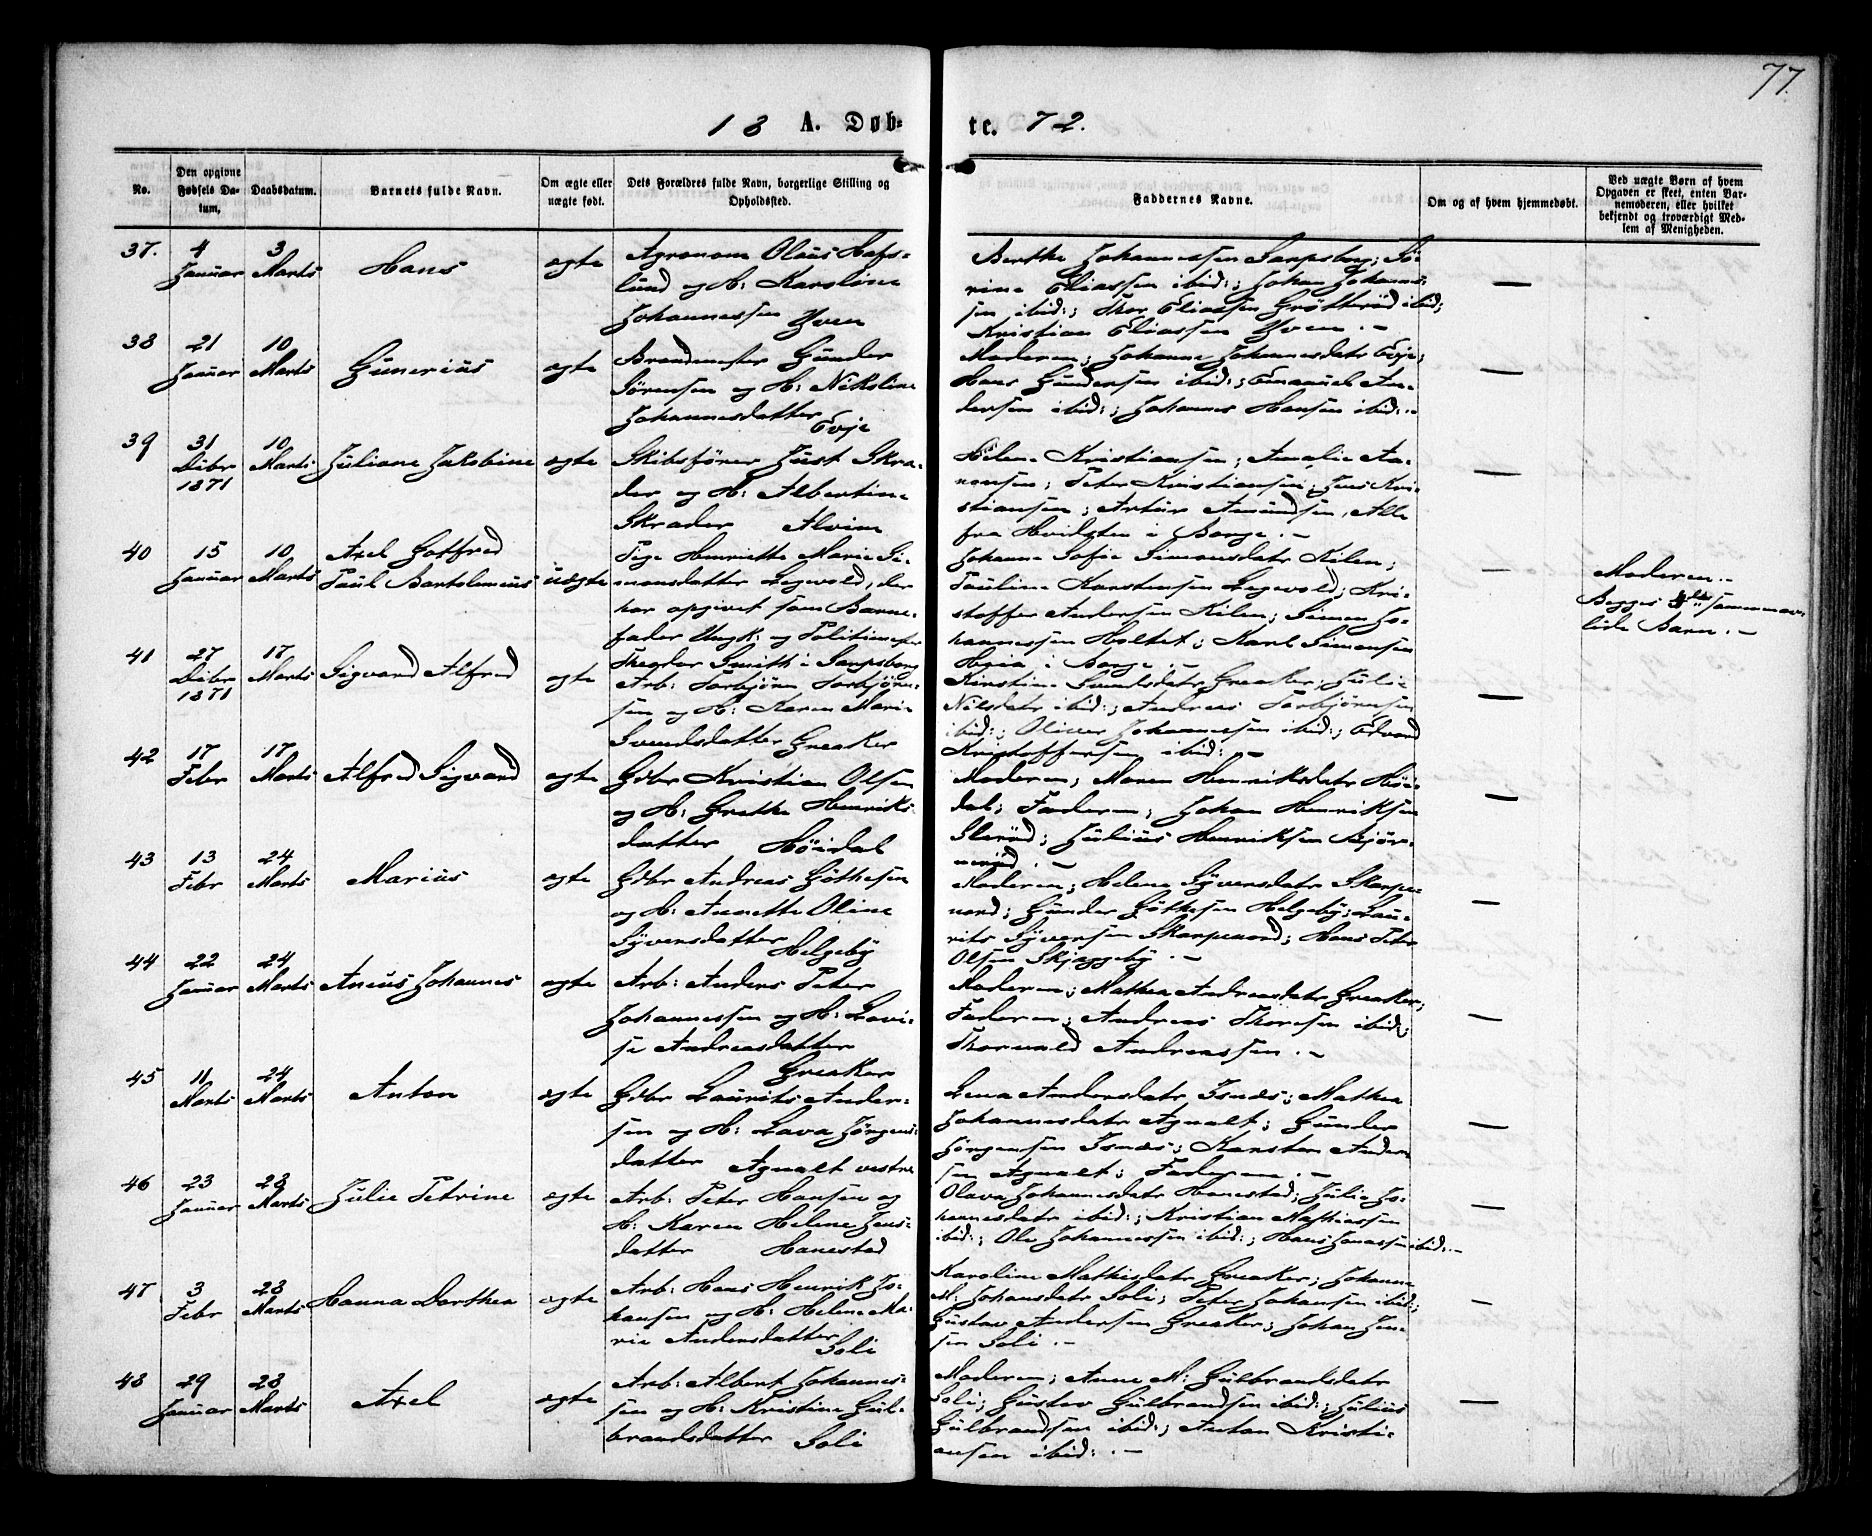 77.
18 A. Døb- te. 72.
No.
Den opgivne Fødsels Da-
tum.
Daabsdatum.
Barnets fulde Navn.
Om ægte eller
uægte født.
Dets Forældres fulde Navn, borgerlige Stilling og
Opholdssted.
Faddernes Navne.
Om og af hvem hjemmedøbt.
Ved uægte Børn af hvem
Opgaven er skeet, enten Bar-
nemoderen, eller hvilket
bekjendt og troværdigt Med-
lem af Menigheden.
37. 4 Januar 3 Marts Hans ægte
Agronom Olaus Hafs-
lund og H: Karoline
Johannessen Yven
Berthe Johannessen Sarpsborg; Sø-
rine Eliassen ibid:; Johan Johannes-
sen ibid:; Thor Eliassen Grøtterød ibid;
Kristian Eliassen Yven. -
38 21 Januar 10 Marts Gunerius ægte
Brandmester Gunder
Sørensen og H: Nikoline
Johannesdatter
Evje
Moderen; Johanne Johannesdatr Evje;
Hans Gundersen ibid:; Emanuel An-
dersen ibid:; Johannes Hansen ibid:-
39 31 Dcbr 1871 10 Marts Juliane Jakobine ægte
Skibsfører Just Skra-
der og H: Albertine
Skrader Alvim
Helene Kristiansen; Amalie Aa-
nonsen; Peter Kristiansen; Jens Kri-
stiansen; Artur Amundsen, Alle
fra Hvidsten i Borge. -
40 15 Januar 10 Marts Axel Gotfred
Paul Bartolemeus uægte
Pige Henriette Marie Si-
monsdatter Legvold, der
har opgivet som Barne-
fader Ungk: og Politimester
Theodor Smith i Sarpsborg
Johanne Sofie Simonsdatr Kilen;
Pauline Karstensen Legvold; Kri-
stoffer Andersen Kilen; Simen Jo-
hannessen Holtet; Karl Simonsen
Heia i Borge. -
Moderen. -
Begges sammenav-
lede Barn. -
41 27 Dcbr 1871 17 Marts Sigvard Alfred ægte
Arb: Torbjørn Torbjørn-
sen og H: Karen Marie
Svendsdatter Greaker
Kirstine Svendsdatr Greaker; Julie
Nilsdatr ibid:; Andreas Torbjørnsen
ibid:; Oliver Johannessen ibid:; Edvard
Kristoffersen ibid: -
42 17 Febr 17 Marts Alfred Sigvard ægte
Gdbr Kristian Olsen
og H: Grethe Henriks-
datter Høidal
Moderen; Maren Henriksdatr Høi-
dal; Faderen; Johan Henriksen
; Julius Henriksen Bjør-
nerød. -
43 13 Febr 24 Marts Marius ægte
Gdbr Andreas Gøthesen
og H: Annette Oline
Syversdatter Helgeby
Moderen; Helene Syversdatr Skarpe-
nord; Gunder Gøthesen Helgeby; Lau-
rits Syversen Skarpenord; Hans Peter
Olsen Skjøggeby. -
44 22 Januar 24 Marts Aneus Johannes ægte
Arb: Anders Peter
Johannessen og H: Lovi-
se Andreasdatter
Greaker
Moderen; Mathea Andreasdatr Greaker;
Faderen; Andreas Thoresen ibid;
Thorvald Andreassen. -
45 11 Marts 24 Marts Anton ægte
Gdbr Laurits Ander-
sen og H: Lava Jørgens-
datter Agnalt vestre
Lena Andersdatr Isnæs; Mathea
Johannesdatr Agnalt; Gunder
Jørgensen Isnæs; Karsten Ander-
sen Agnalt; Faderen. -
46 23 Januar 28 Marts Julie Petrine ægte
Arb: Peter Hansen og
H: Karen Helene Jens-
datter Hanestad
Olava Johannesdatr Hanestad; Julie Jo-
hannesdatr ibid:; Kristian Mathiassen
ibid:; Ole Johannessen ibid:; Hans Jonassen ibid: -
47 3 Febr 28 Marts Hanna Dorthea ægte
Arb: Hans Henrik Jo-
hansen og H: Helene Ma-
rie Andersdatter
Soli
Karoline Mathisdatr Greaker; Johanne
M: Johansdatr Soli; Peter Johansen ibid:;
Gustav Andersen Greaker; Johan Jen-
sen Soli. -
48 29 Januar 28 Marts Axel ægte
Arb: Albert Johannes-
sen og H: Kristine Gul-
brandsdatter Soli
Moderen; Anne M: Gulbrandsdatr
Soli; Gustav Gulbrandsen ibid:; Julius
Gulbrandsen ibid:; Anton Kristi-
ansen ibid: -